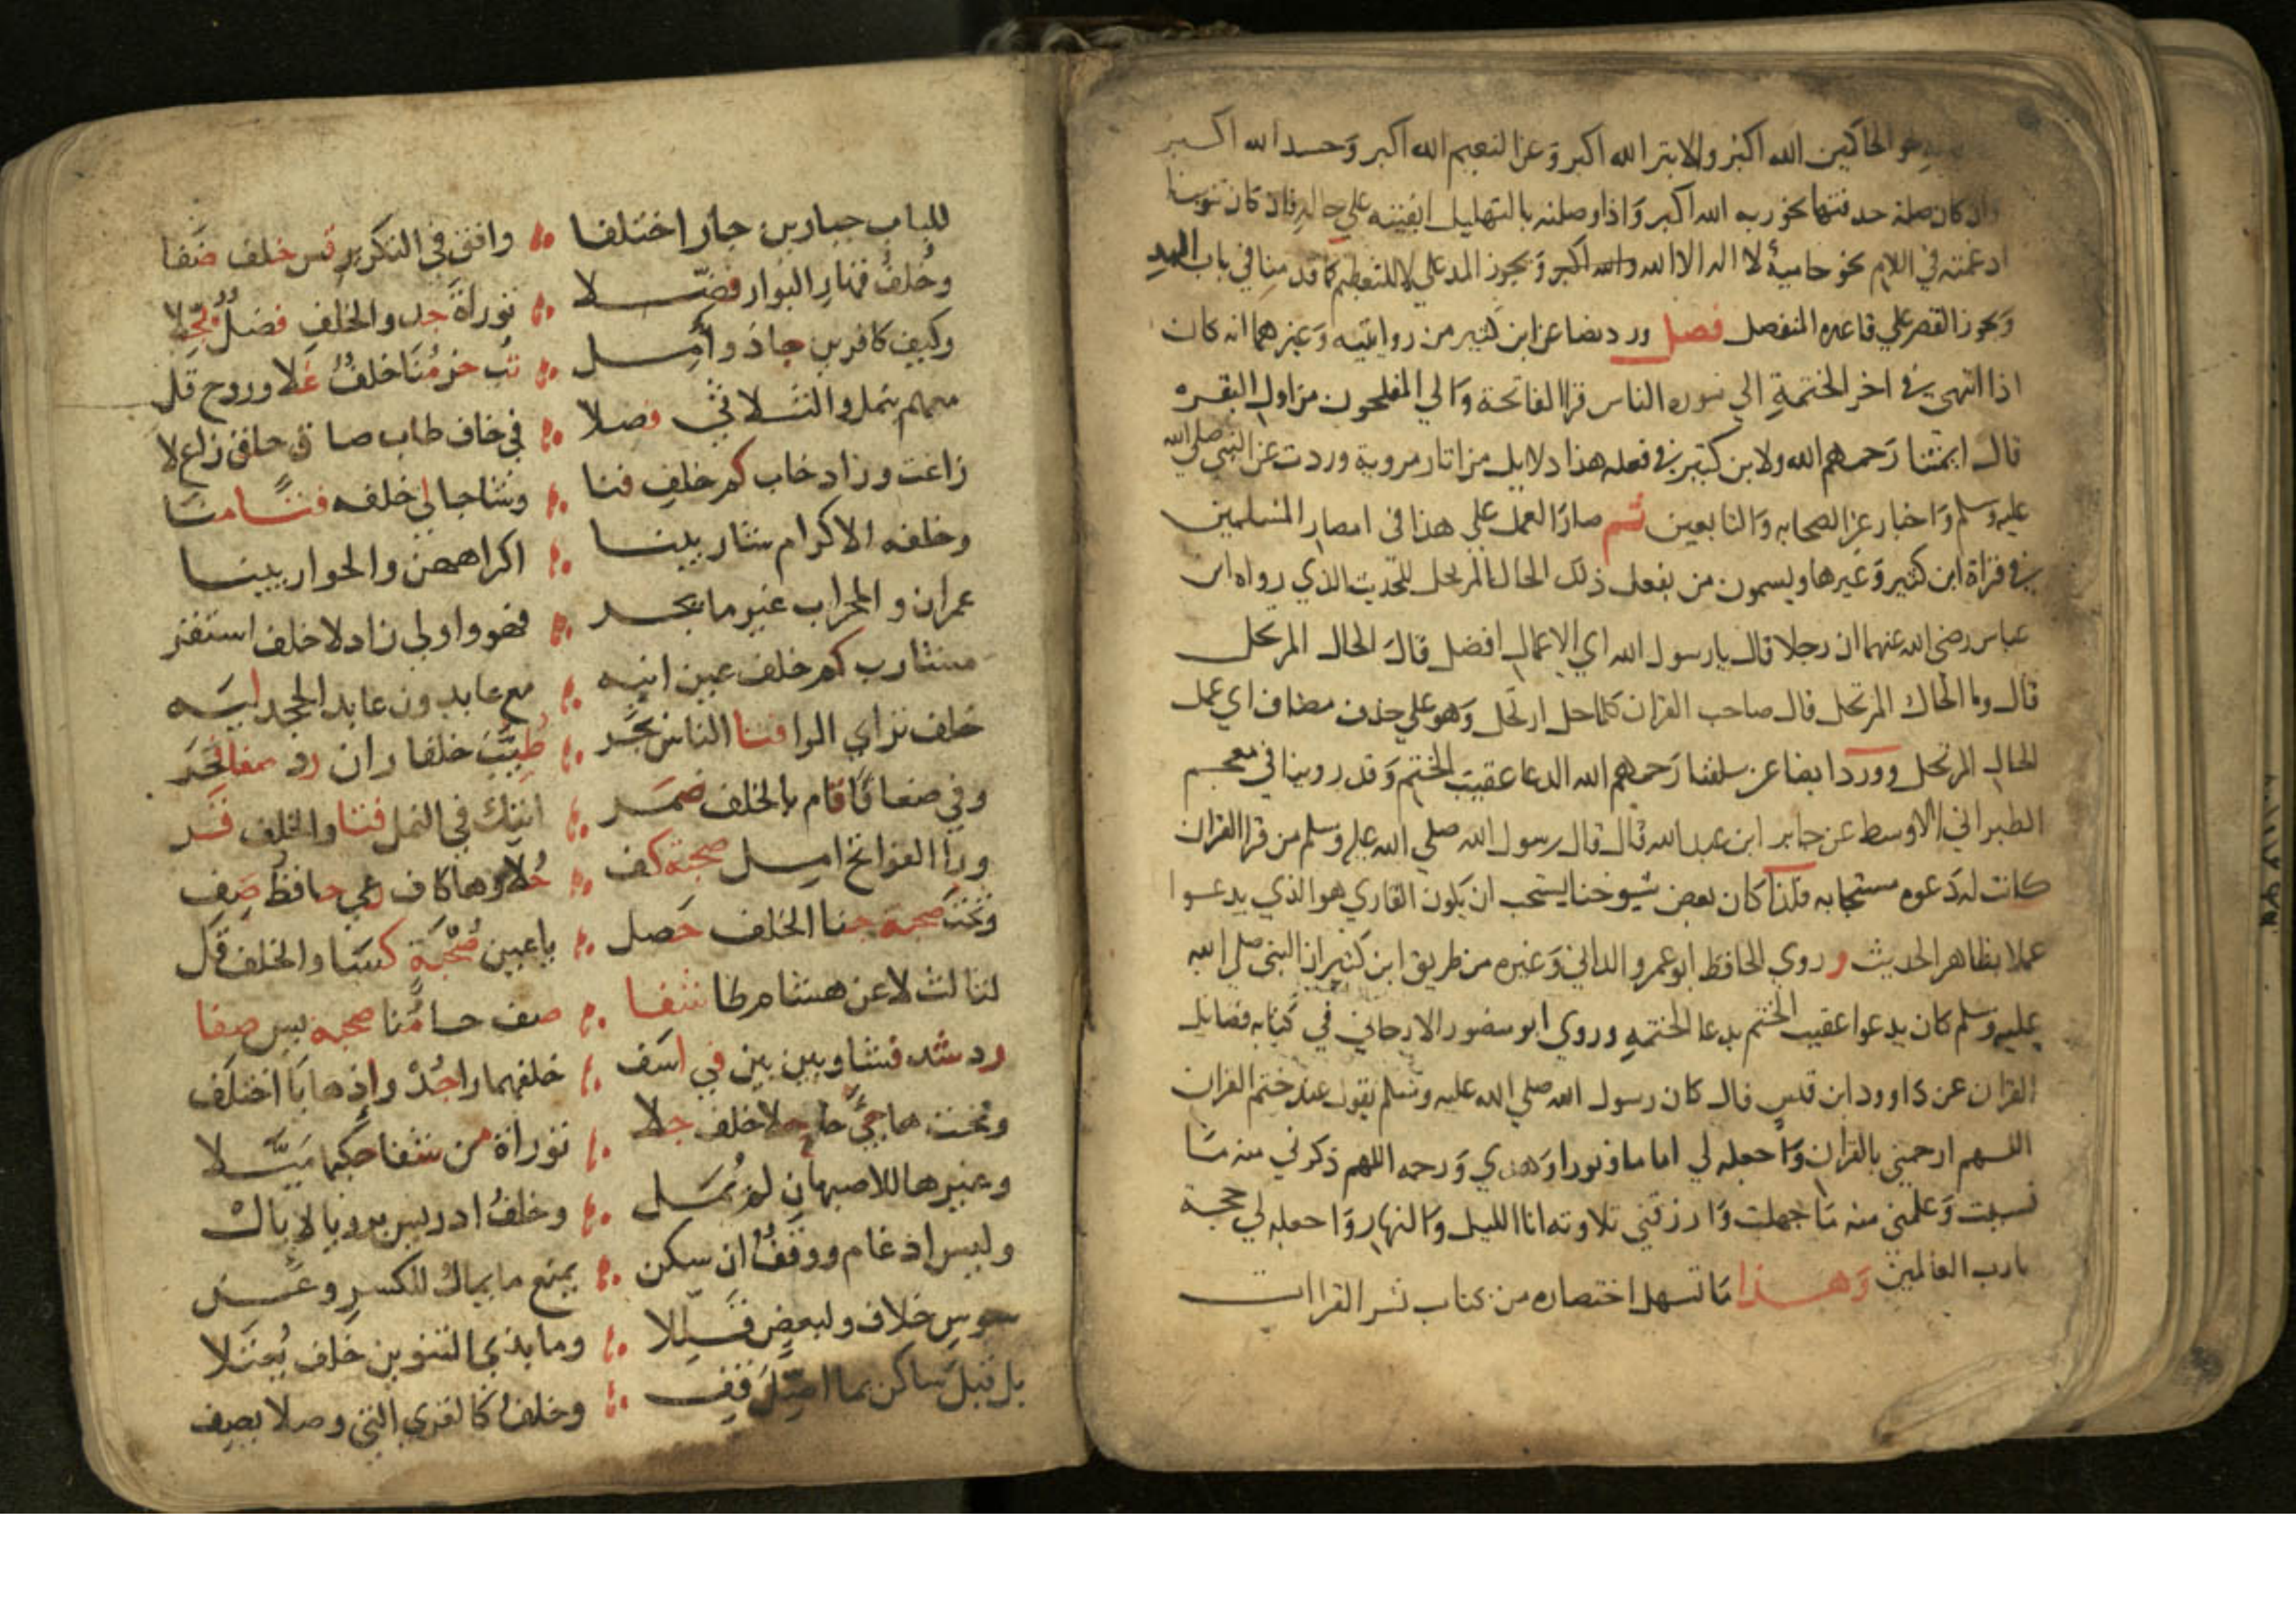 نحو الحاكمين الله اكبر والابتر الله اكبر وعن النعيم الله اكبر وحسد الله اكبر
وان كان صلة حذفتها نحو ربه الله اكبر واذا وصلته بالتهليل ابقيته على حاله فان كان تنوينا
ادغمته في اللام نحو حامية لا اله الا الله والله اكبر ويجوز المد على لا للتعظيم كما قدمنا في باب المد
ويجوز القصر على قاعدة المنفصل فصل ورد نصا عن ابن كثير من روايتيه وغيرهما انه كان
اذا انتهى في اخر الختمة الي سورة الناس قرا الفاتحة والي المفلحون من اول البقرة
قال ايمتنا رحمهم الله ولابن كثير في فعله هذا دلايل من اثار مروية وردت عن النبي صلى الله
عليه وسلم واخبار عن الصحابه والتابعين ثم صار العمل على هذا في امصار المسلمين
في قراة ابن كثير وغيرها ويسمون من يفعل ذلك الحال المرتحل للحديث الذي رواه ابن
عباس رضي الله عنهما ان رجلا قال يا رسول الله اي الاعمال افضل قال الحال المرتحل
قال وما الحال المرتحل قال صاحب القران كلما حل ارتحل وهو على حذف مضاف اي عمل
الحال المرتحل وورد ايضا عن سلفنا رحمهم الله الدعا عقيب الختم وقد روينا في معجم
الطبراني الاوسط عن جابر ابن عبد الله قال قال رسول الله صلي الله عليه وسلم من قرا القران
كانت له دعوه مستجابه فلذا كان بعض شيوخنا يستحب ان يكون القاري هو الذي يدعوا
عملا بظاهر الحديث و روي الحافظ ابو عمرو الداني وغيره من طريق ابن كثير ان النبي صلي الله
عليه وسلم كان يدعوا عقيب الختم بدعا الختمه وروي ابو منصور الارجاني في كتابه فضايل
القران عن داوود ابن قيس قال كان رسول الله صلي الله عليه وسلم يقول عند ختم القران
اللهم ارحمني بالقران واجعله لي اماما ونورا وهدي ورحمه اللهم ذكرني منه ما
نسيت وعلمني منه ما جهلت وارزقني تلاوته انا الليل والنهار واجعله لي حجة
يارب العالمين وهذا ما تسهل اختصاره من كتاب نشر القراات
للباب جبارين جار اختلفا وافق في التكرير قس خلف ضفا
وخلف قهار البوار فضلا توراة جد والخلف فضل بجلا
وكيف كافرين جاد وامل تب حز منا خلف غلا وروح قل
معهم بنمل والثلاثي فصلا في خاف طاب ضاق حاق زاغ لا
زاغت وزاد خاب كم خلف فنا وشا جا لي خلفه فتا منا
وخلفه الاكرام شاربينا اكراههن والحواريينا
عمران والمحراب غير ما يجر فهو واولي زاد لا خلف استقر
مشارب كم خلف عين انيه مع عابدون عابد الجحد ليه
خلف تراي الرا فتا الناس بجر طيب خلفا ران رد صفا فخر
وفي ضعافا قام بالخلف ضمر اتيك في النمل فتا والخلف قر
ورا الفواتح امل صحبة كف حلا وها كاف رعي حافظ صف
وتحت صحبة جنا الخلف حصل يا عين صحبة كسا والخلف قل
لثالث لا عن هشام طا شفا صف حا منا صحبة يس صفا
رد شد فشا وبين بين في اسف خلفهما را جد واذ ها يا اختلف
وتحت ها جي حا حلا خلف جلا توراة من شفا حكيما ميلا
وغيرها للاصبهان لم يمل وخلف ادريس برويا لا بال
وليس ادغام ووقف ان سكن يمنع ما يمال للكسر وعن
سوس خلاف ولبعض قللا وما بذي التنوين خلف يعتلا
بل قبل ساكن بما اصل قف وخلف كالقري التي وصلا يصف